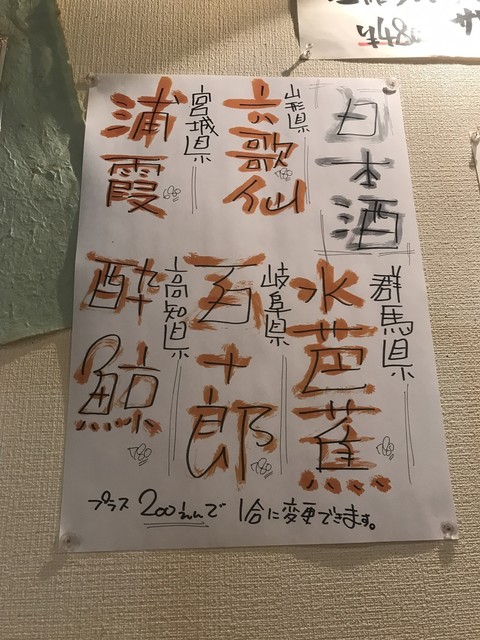 日本酒
山形県
六歌仙
宮城県
浦霞
群馬県
水芭蕉
岐阜県
百十郎
高知県
酔鯨
780
780
780
プラス 200えんで 1合に変更できます。